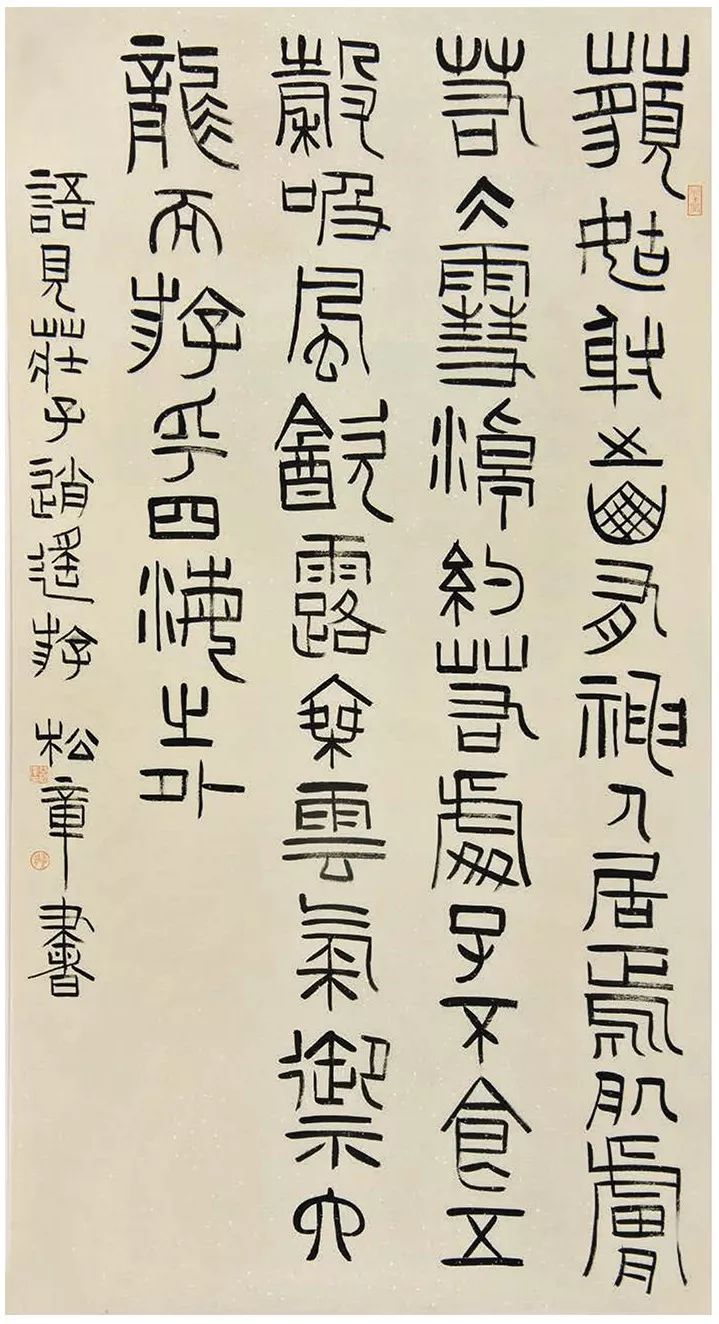 藐姑射之山有神人居焉肌膚
若冰雪淖約若處子不食五
穀吸風飲露乘雲氣禦
龍而游乎四海之外
語見莊子逍遙游 松章書